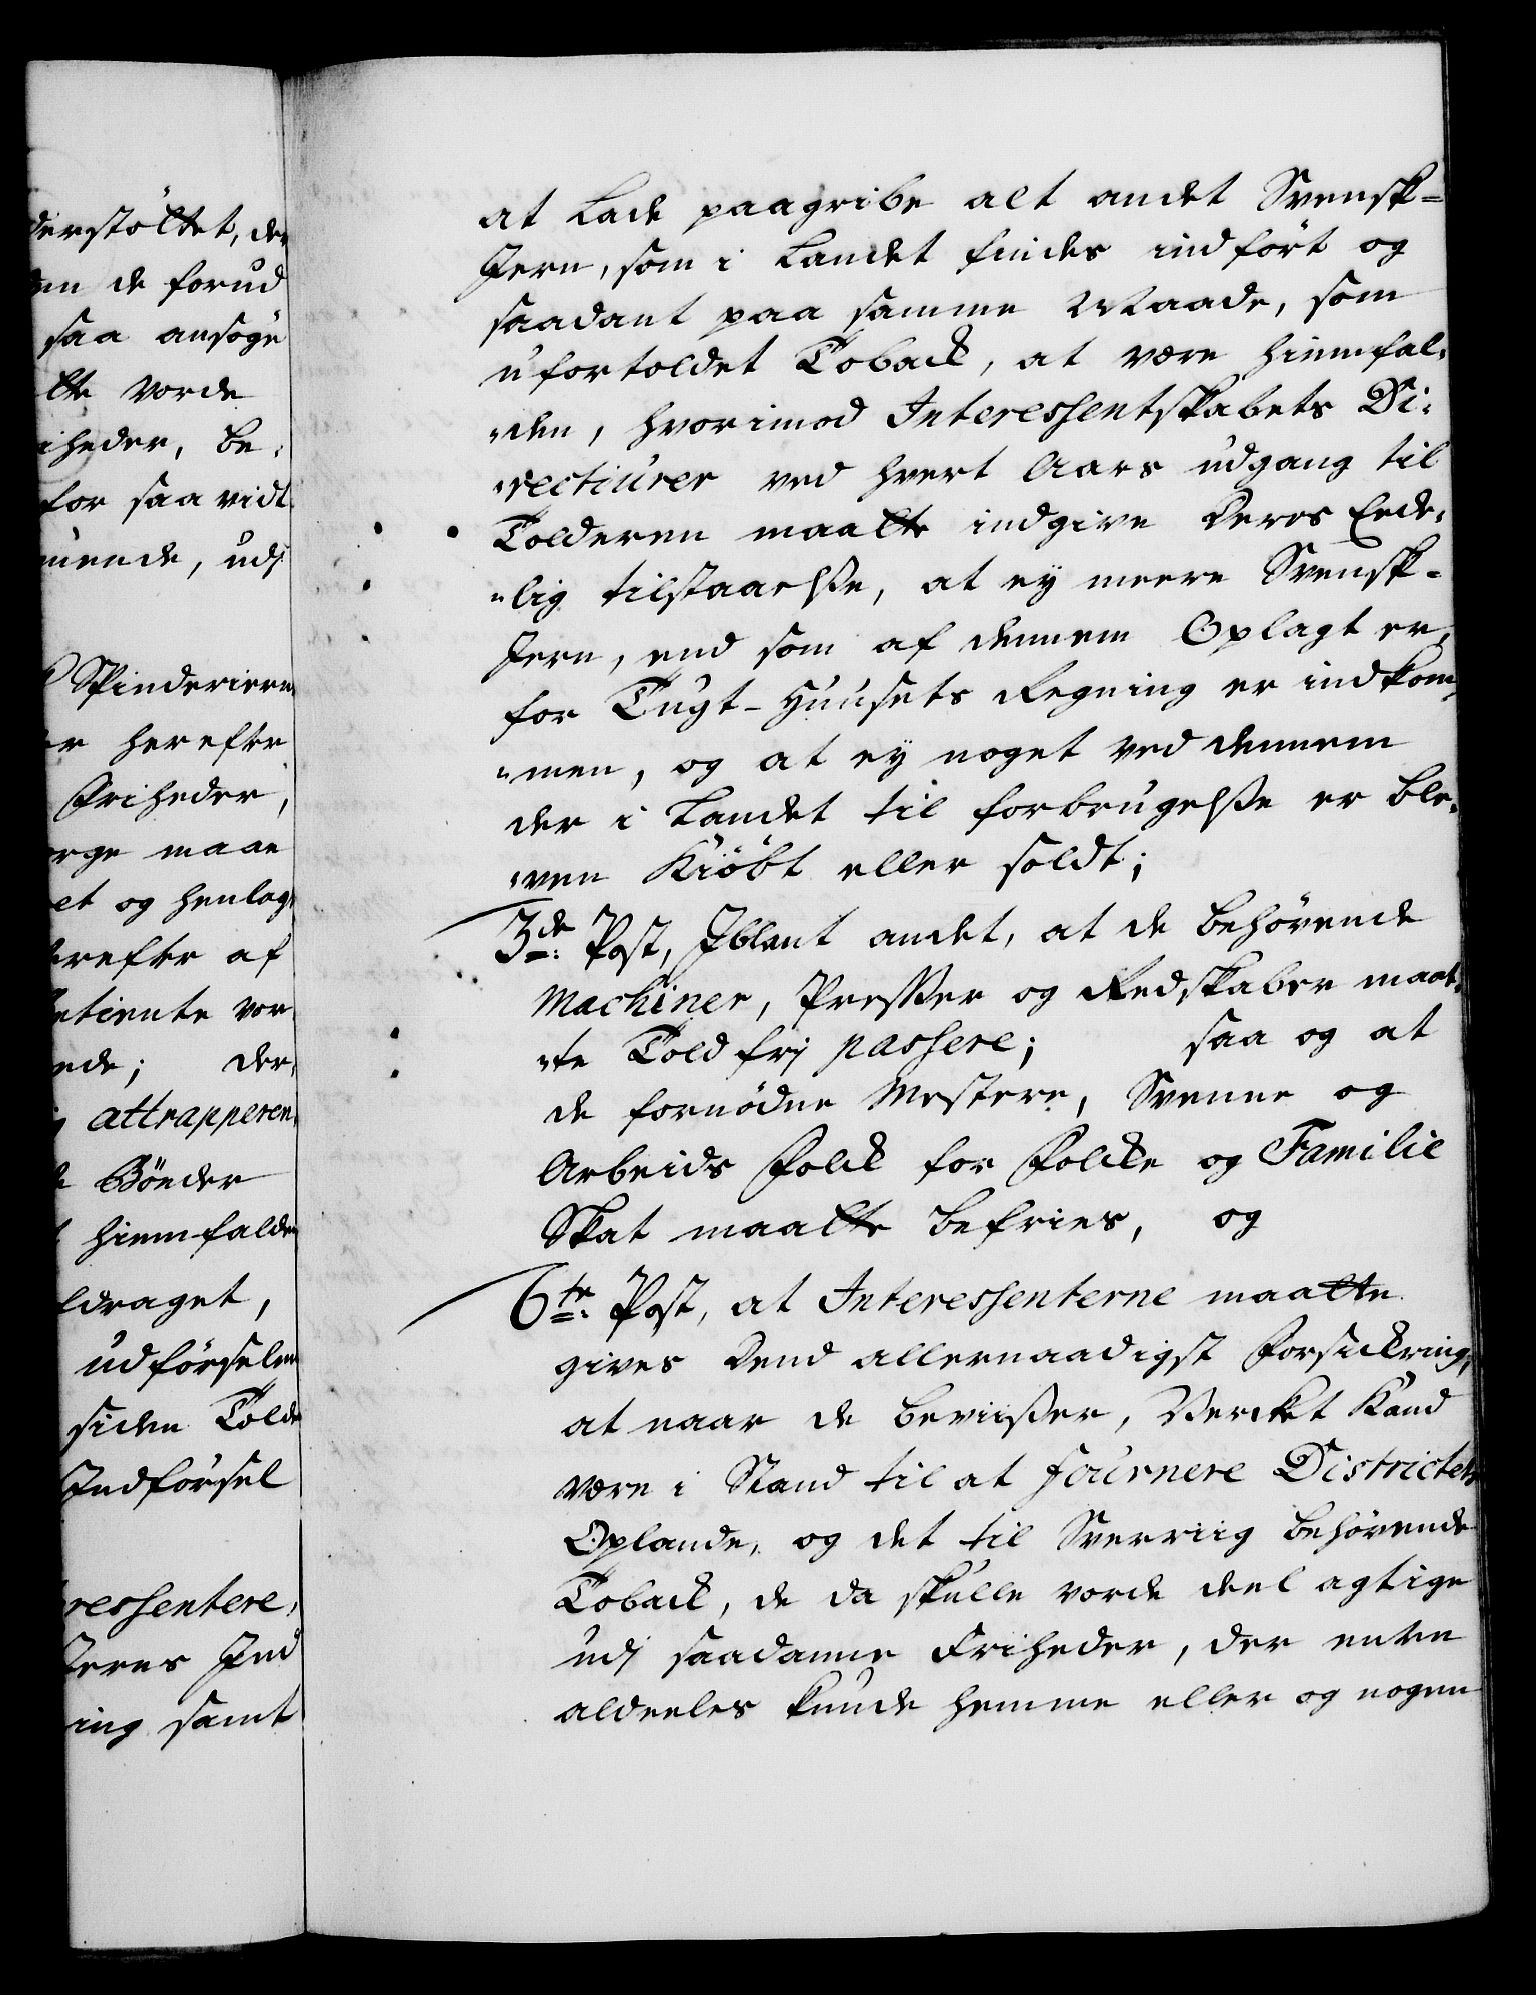 derstöttet, der
en de forud
saa ansøge
tte vorde
iheder, be„
for saa vidt
ende, udj
Spinderierne
er herefter
Friheder,
orge maae
et og henlagt
erefter af
vor
ede; der„
attrapperen„
Bönder
hiemfalden
draget,
udförselen
siden Tolde
Indförsel
ressentere,
deres Ind
ing samt
at Lade paagribe alt andet Svensk-
Jern, som i Landet findes indfört og
saadant paa samme Maade, som
ufortoldet Toback, at være hiemfal„
„den, hvorimod Interessentskabets Di„
„recteurer ved hvert Aars udgang til
Tolderen maatte indgive deres Eede„
„lig tilstaaelsse, at ey meere Svensk-
Jern, end som af dennem Oplagt er,
for Tugt-Huusets Regning er indkom„
„men, og at ey noget ved dennem
der i Landet til forbrugelsse er ble„
„ven Kiöbt eller soldt;
3de: Post, Iblant andet, at de behövende
Machiner, Presser og Redskaber maat„
„te Told frj passere; saa og at
de fornödne Mestere, Svenne og
Arbeids Folck for Folcke og Familie
Skat maatte befries, og
6te: Post, at Interessenterne maatte
gives Dend allernaadigst Forsickring,
at naar de beviisser, Vercket Kand
være i Stand til at fournere Districtets
Oplande, og det til Sverriig behövende
Toback, de da skulle vorde deelagtige
udj saadanne Friheder, der enten
aldeeles kunde hemme eller og nogen